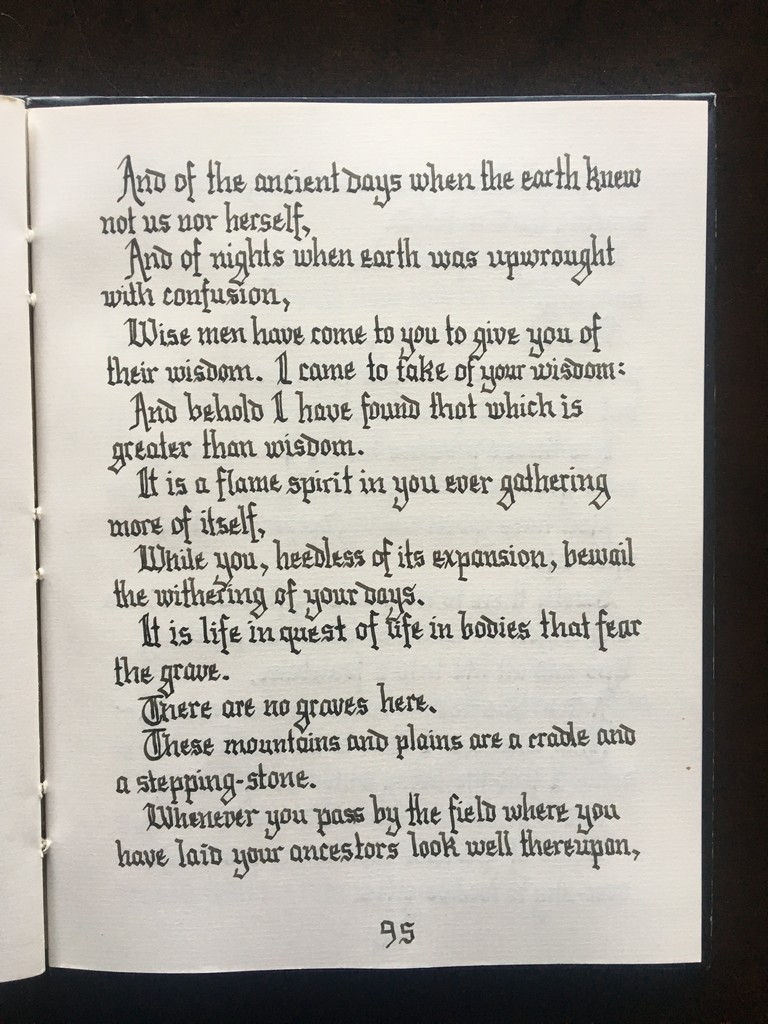 And of the ancient days when the earth knew
not us nor herself,
And of nights when earth was upwrought
with confusion,
Wise men have come to you to give you of
their wisdom. I came to take of your wisdom:
And behold I have found that which is
greater than wisdom.
It is a flame spirit in you ever gathering
more of itself,
While you, heedless of its expansion, bewail
the withering of your days.
It is life in quest of life in bodies that fear
the grave.
There are no graves here.
These mountains and plains are a cradle and
a stepping-stone.
Whenever you pass by the field where you
have laid your ancestors look well thereupon,
95